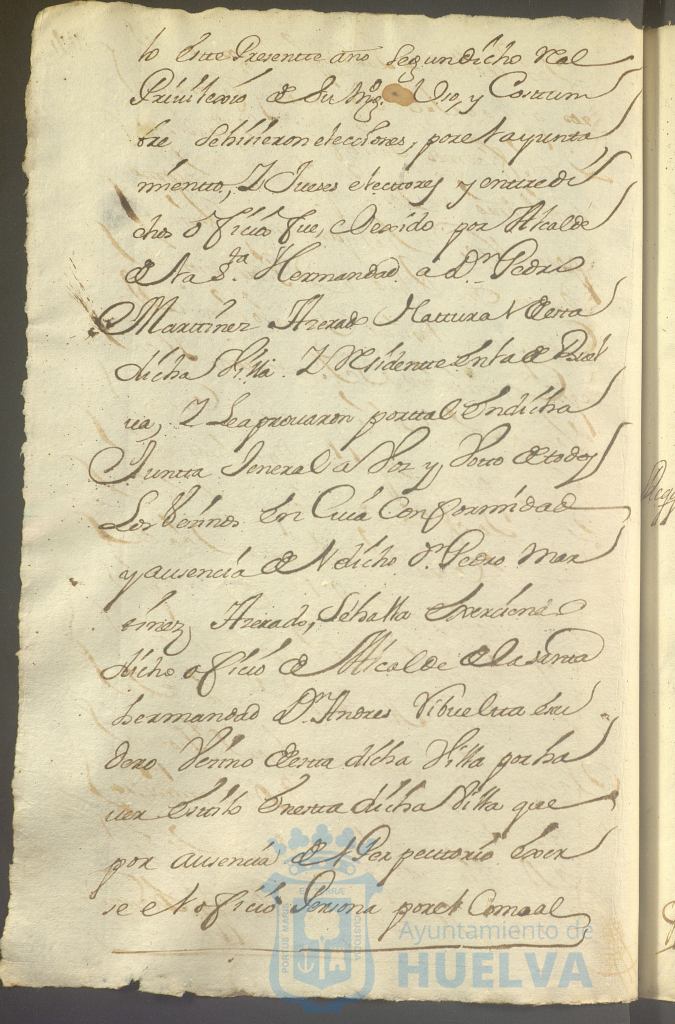 to Este Presentte año Segun dicho Real
Privilexio de Su Mg. Uso, y Costtum
bre Sehisieron elecciones, por el ayunta
mientto, Y Jueses electtores y enttre di
chos oficios fue, elexido por Alcalde
de la Sta. Hermandad a Dn. Pedro
Marttinez Azerado Nattural de esta
dicha Villa. Y Residentte En la de
va, Y Se aprovaron por tal En dicha
Juntta Jeneral a Voz y Votto de todos
Los Vesinos En Cuia Conformidad
y ausencia del dicho Dn. Pedro Mar
tinez Azerado, Sehalla Exerciendo
dicho oficio de Alcalde de la Santa
hermandad Dn. Andres Escu
dero Vesino de esta dicha Villa por ha
ver Estilo En esta dicha Villa que
por ausencia del Exer
se el oficio Persona por el Como al
PORTUS MARIS
ET TERRÆ
CUSTODIA
Ayuntamiento de
HUELVA